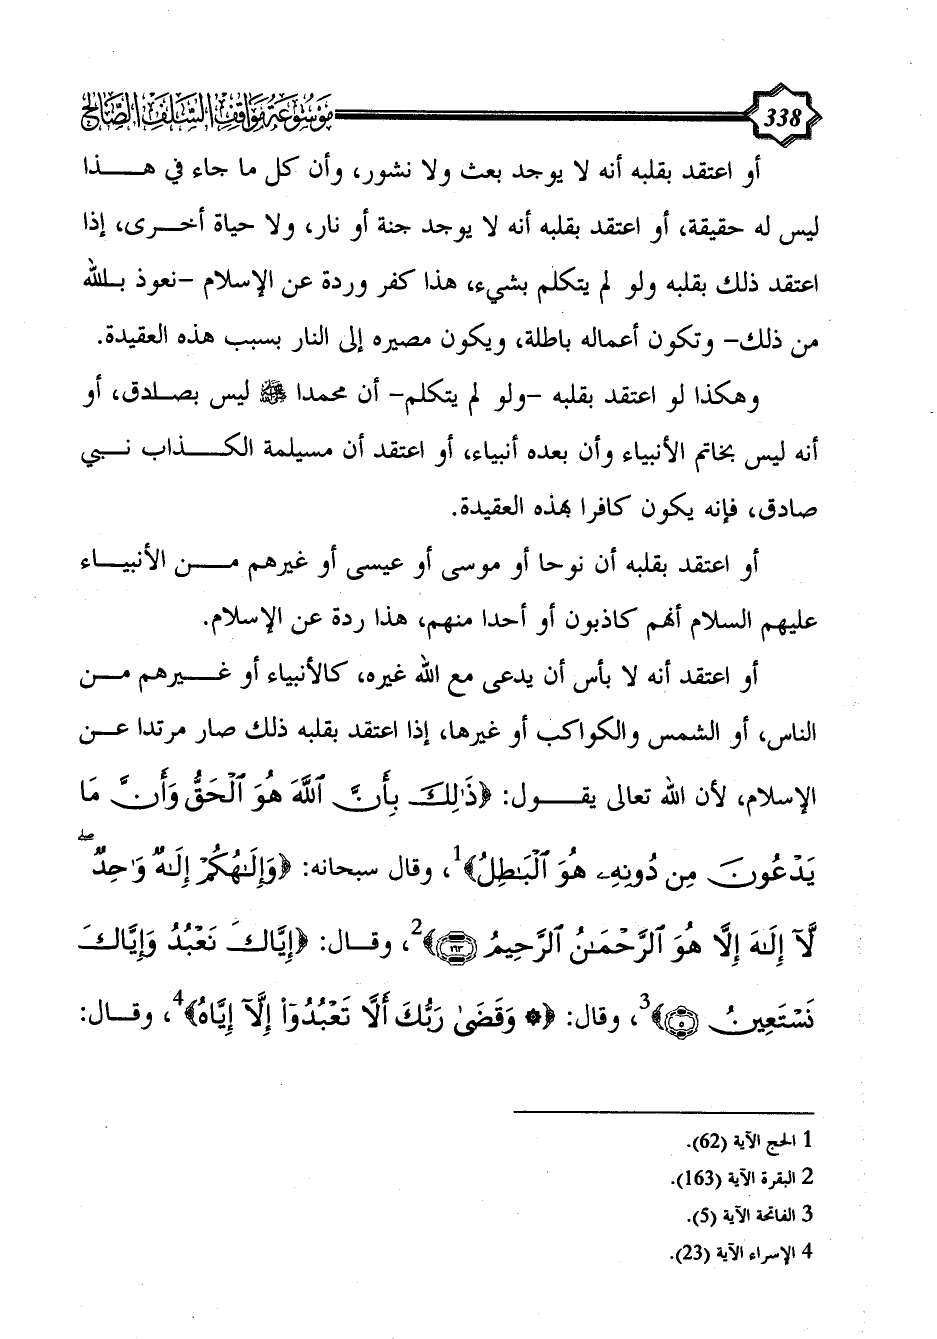 موسوعة مواقف السلف الصالح 338
أو اعتقد بقلبه أنه لا يوجد بعث ولا نشور، وأن كل ما جاء في هـــذا
ليس له حقيقة، أو اعتقد بقلبه أنه لا يوجد جنة أو نار، ولا حياة أخـــرى، إذا
اعتقد ذلك بقلبه ولو لم يتكلم بشيء، هذا كفر وردة عن الإسلام -نعوذ بـالله
من ذلك- وتكون أعماله باطلة، ويكون مصيره إلى النار بسبب هذه العقيدة.
وهكذا لو اعتقد بقلبه -ولو لم يتكلم- أن محمدا ﷺ ليس بصـادق، أو
أنه ليس بخاتم الأنبياء وأن بعده أنبياء، أو اعتقد أن مسيلمة الكـــذاب نـبي
صادق، فإنه يكون كافرا بهذه العقيدة.
أو اعتقد بقلبه أن نوحا أو موسى أو عيسى أو غيرهم مـــن الأنبيـــاء
عليهم السلام أنهم كاذبون أو أحدا منهم، هذا ردة عن الإسلام.
أو اعتقد أنه لا بأس أن يدعى مع الله غيره، كالأنبياء أو غـــيرهم مـــن
الناس، أو الشمس والكواكب أو غيرها، إذا اعتقد بقلبه ذلك صار مرتدا عـــن
الإسلام، لأن الله تعالى يقـــول: ﴿ذَٰلِكَ بِأَنَّ ٱللَّهَ هُوَ ٱلْحَقُّ وَأَنَّ مَا
يَدْعُونَ مِن دُونِهِۦ هُوَ ٱلْبَٰطِلُ﴾1، وقال سبحانه: ﴿وَإِلَٰهُكُمْ إِلَٰهٌ وَٰحِدٌ ۖ
لَّآ إِلَٰهَ إِلَّا هُوَ ٱلرَّحْمَٰنُ ٱلرَّحِيمُ ١٦٣﴾2، وقـال: ﴿إِيَّاكَ نَعْبُدُ وَإِيَّاكَ
نَسْتَعِينُ ٥﴾3، وقال: ﴿۞ وَقَضَىٰ رَبُّكَ أَلَّا تَعْبُدُوٓا۟ إِلَّآ إِيَّاهُ﴾4، وقـال:
1 الحج الآية (62).
2 البقرة الآية (163).
3 الفاتحة الآية (5).
4 الإسراء الآية (23).